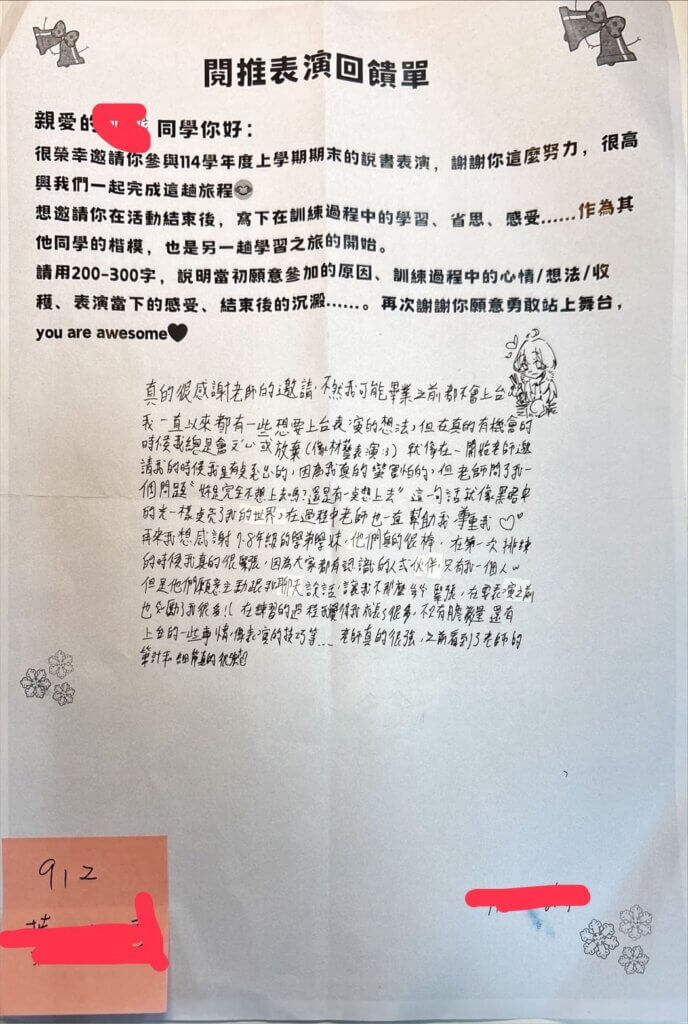 閱推表演回饋單
親愛的 同學你好：
很榮幸邀請你參與114學年度上學期期末的說書表演，謝謝你這麼努力，很高
興我們一起完成這趟旅程
想邀請你在活動結束後，寫下在訓練過程中的學習、省思、感受……作為其
他同學的楷模，也是另一趟學習之旅的開始。
請用200-300字，說明當初願意參加的原因、訓練過程中的心情/想法/收
穫、表演當下的感受、結束後的沉澱……。再次謝謝你願意勇敢站上舞台，
you are awesome♥
真的很感謝老師的邀請，不然我可能畢業之前都不會上台
我一直以來都有一些想要上台表演的想法，但在真的有機會的
時候我總是會 或放棄(像材藝表演:3) 就像在一開始老師邀
請我的時候我是有 的，因為我真的蠻害怕的，但老師問了我一
個問題"妳是完全不想上去嗎？還是有一點想上去"這一句話就像黑暗中
的光一樣點亮了我的世界，在過程中老師也一直幫助我 尊重我♡
再來我想感謝7.8年級的學弟學妹，他們真的很棒，在第一次排練
的時候我真的很緊張，因為大家都有認識的人或伙伴，只有我一個人
但是他們願意主動跟我聊天說話，讓我不那麼 緊張，在要表演之前
也鼓勵了我很多!! 在練習的過程我覺得我成長了很多，不只有膽 量 還有
上台的一些事情，像表演的技巧等... 老師真的很強，之前看到了老師的
筆計本 細節真的很強
912